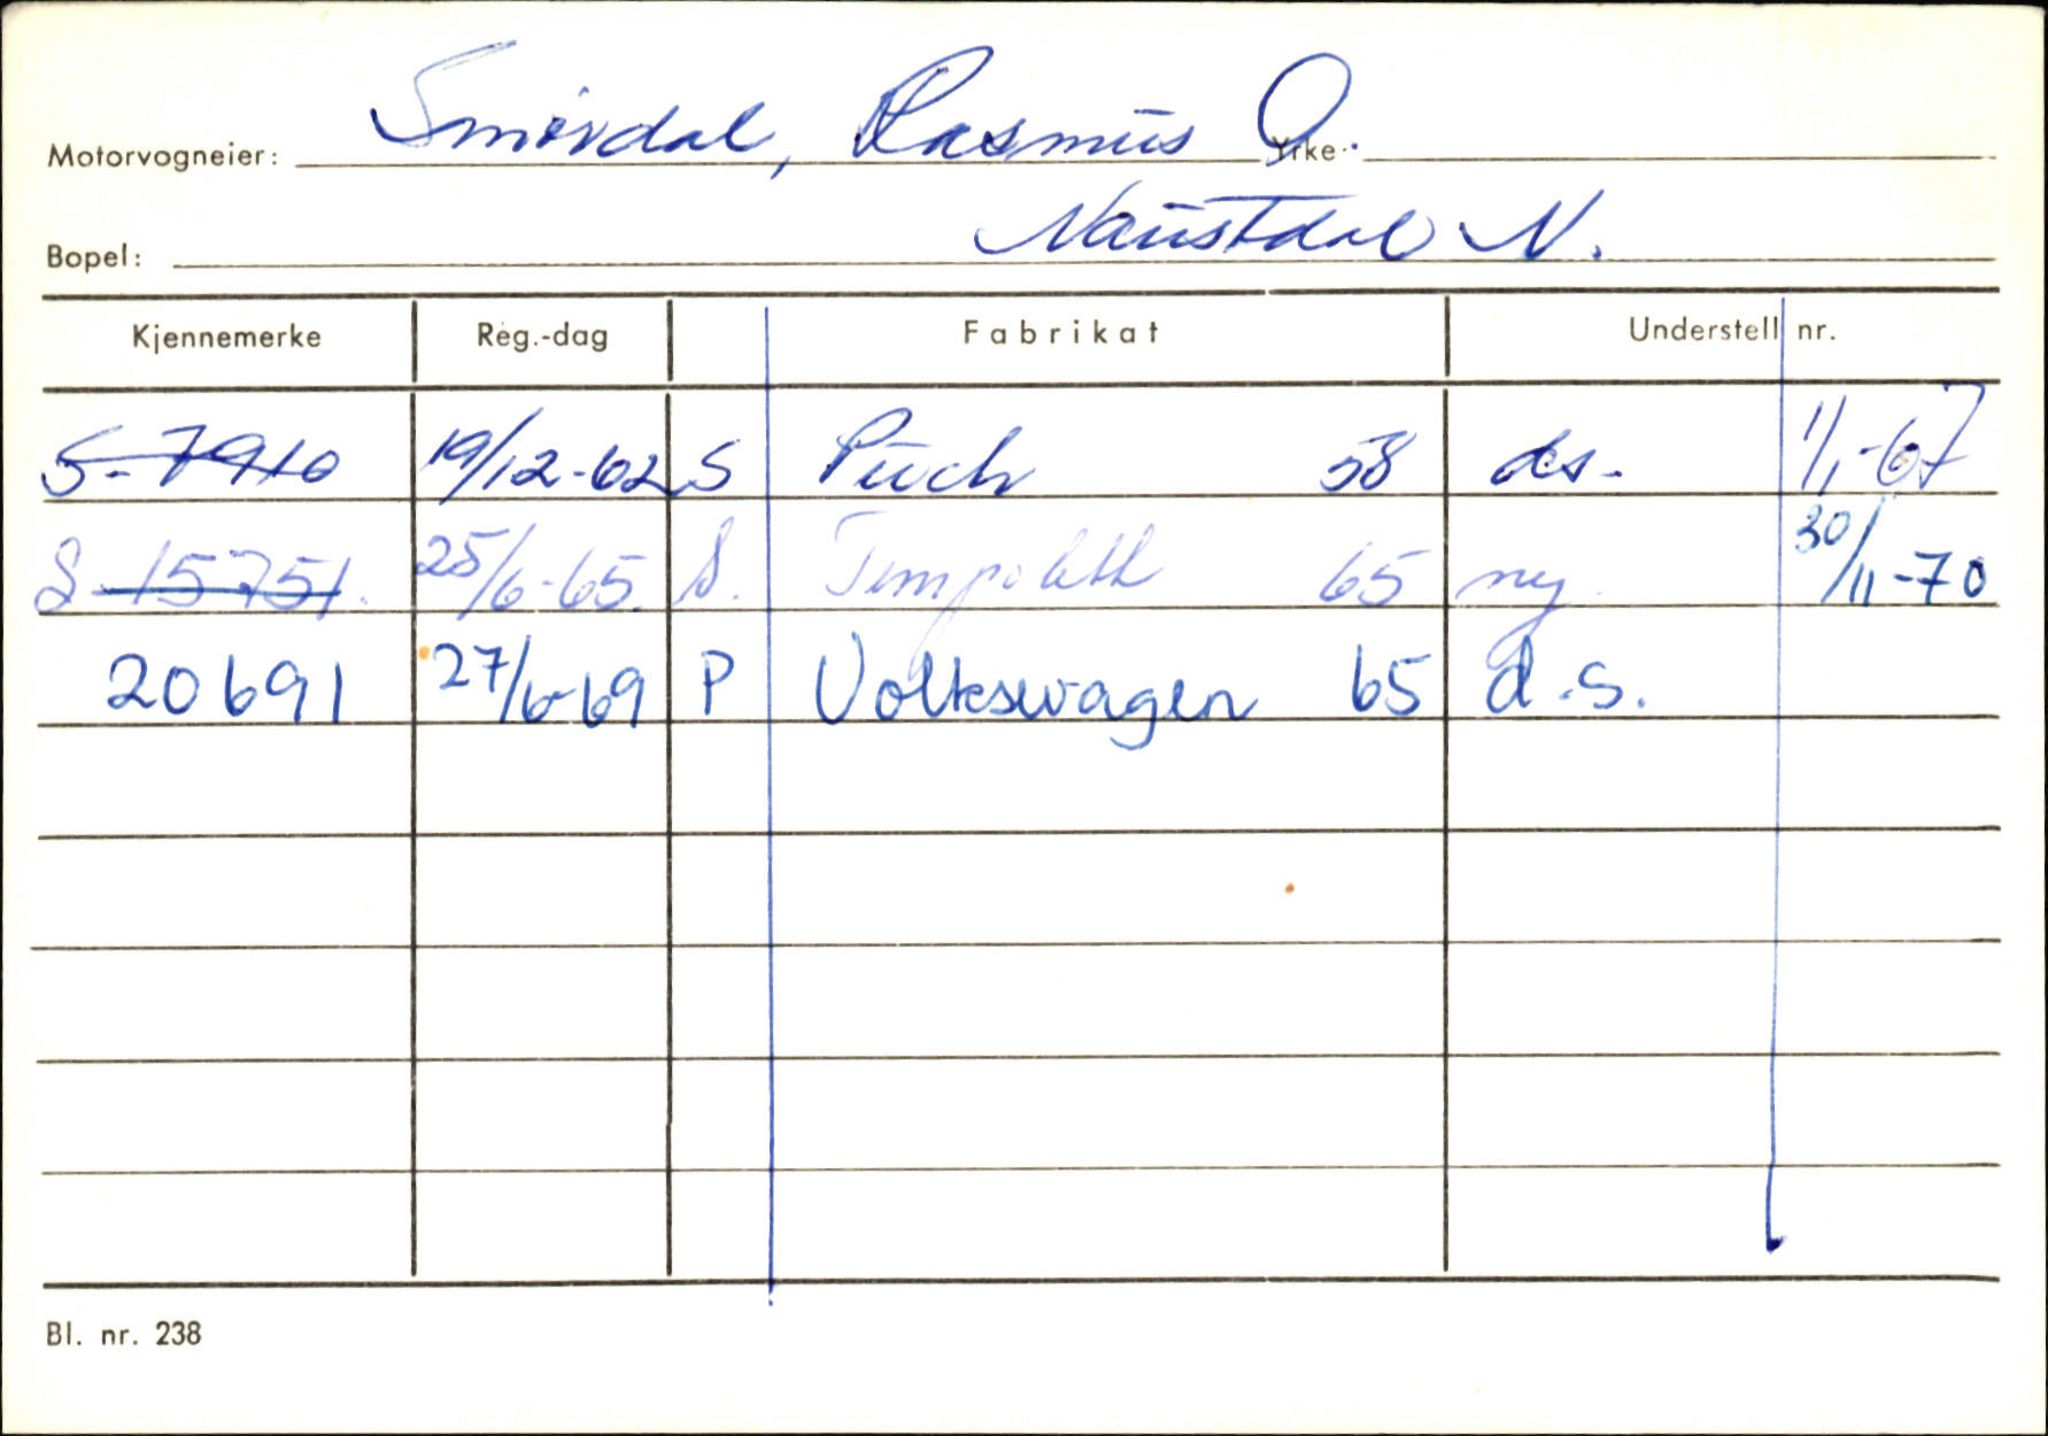 Motorvogneier: Smørdal, Rasmus O. Yrke
Bopel: Naustdal N.
Kjennemerke Reg.-dag Fabrikat Understell nr.
S-7910 19/12-62 S Puch 58 ds. 1/1-67
S 15751. 25/6-65. S. Tempolett 65 ny 30/11-70
20691 27/6-69 P Volkswagen 65 d.s.
Bl. nr. 238